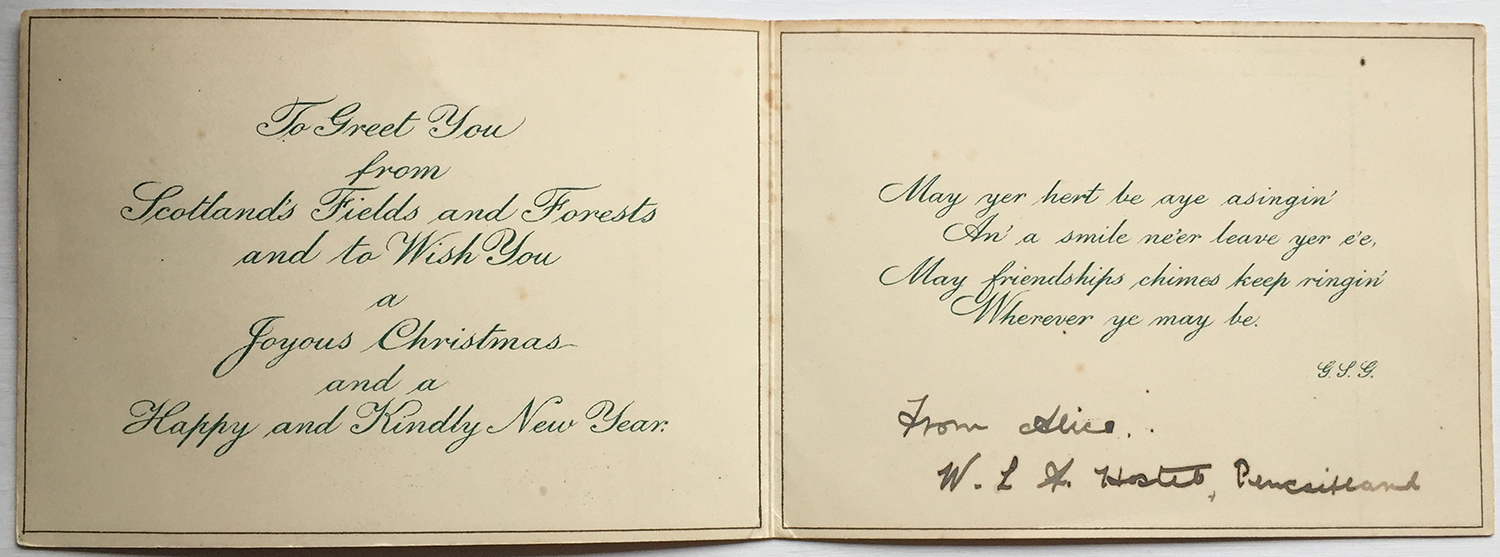 To Greet You
from
Scotland's Fields and Forests
and to Wish You
a
Joyous Christmas
and a
Happy and Kindly New Year.
May yer hert be aye asingin'
An' a smile ne'er leave yer e'e,
May friendships chimes keep ringin'
Wherever ye may be.
G.S.G.
From Alice.
W. L A. Hostel, Pencaitland